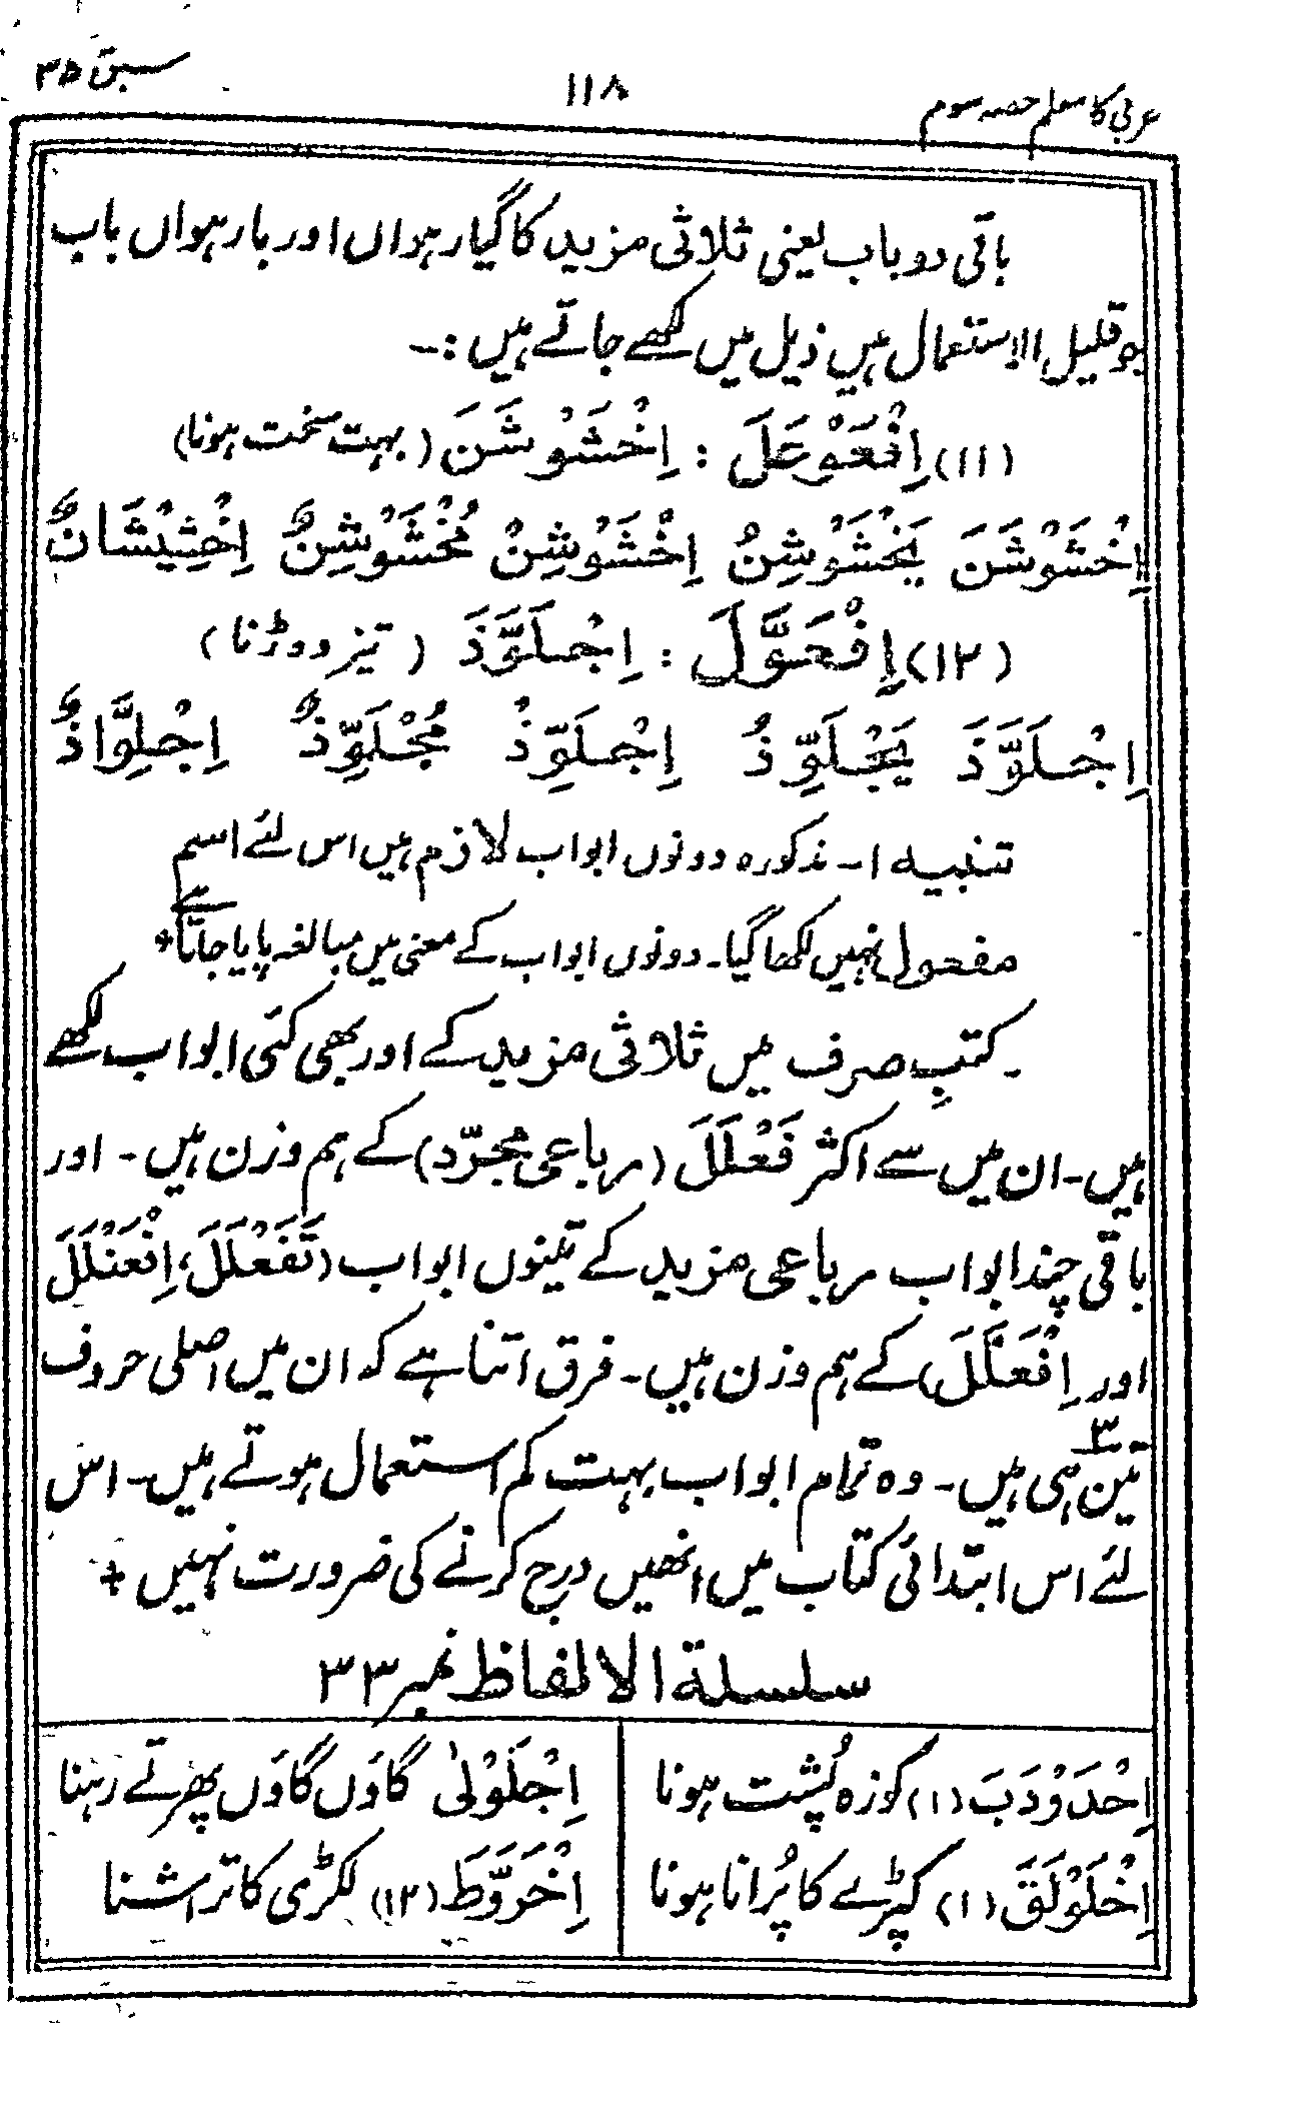 عربی کا معلم حصہ سوم
۱۱۸
سبق ۳۵
باقی دو باب یعنی ثلاثی مزید کا گیارہواں اور بارہواں باب
جو قلیل الاستعمال ہیں ذیل میں لکھے جاتے ہیں :-
(۱۱) اِفْعَوْعَلَ : اِخْشَوْشَنَ (بہت سخت ہونا)
اِخْشَوْشَنَ يَخْشَوْشِنُ اِخْشَوْشِنْ مُخْشَوْشِنٌ اِخْشِيْشَانٌ
(۱۲) اِفْعَوَّلَ : اِجْلَوَّذَ (تیز دوڑنا)
اِجْلَوَّذَ يَجْلَوِّذُ اِجْلَوِّذْ مُجْلَوِّذٌ اِجْلِوَّاذٌ
تنبیہ ۱- مذکورہ دونوں ابواب لازم ہیں اس لئے اسم
مفعول نہیں لکھا گیا۔ دونوں ابواب کے معنی میں مبالغہ پایا جاتا ہے *
کتبِ صرف میں ثلاثی مزید کے اور بھی کئی ابواب لکھے
ہیں۔ ان میں سے اکثر فَعْلَلَ (رباعی مجرّد) کے ہم وزن ہیں۔ اور
باقی چند ابواب رباعی مزید کے تینوں ابواب (تَفَعْلَلَ، اِفْعَنْلَلَ
اور اِفْعَلَلَّ) کے ہم وزن ہیں۔ فرق اتنا ہے کہ ان میں اصلی حروف
تین۳ ہی ہیں۔ وہ تمام ابواب بہت کم استعمال ہوتے ہیں۔ اس
لئے اس ابتدائی کتاب میں انھیں درج کرنے کی ضرورت نہیں +
سلسلة الالفاظ نمبر ۳۳
اِحْدَوْدَبَ (۱) کوزہ پُشت ہونا
اِخْلَوْلَقَ (۱) کپڑے کا پُرانا ہونا
اِجْلَوْلیٰ گاؤں گاؤں پھرتے رہنا
اِخْرَوَّطَ (۱۲) لکڑی کا تراشنا